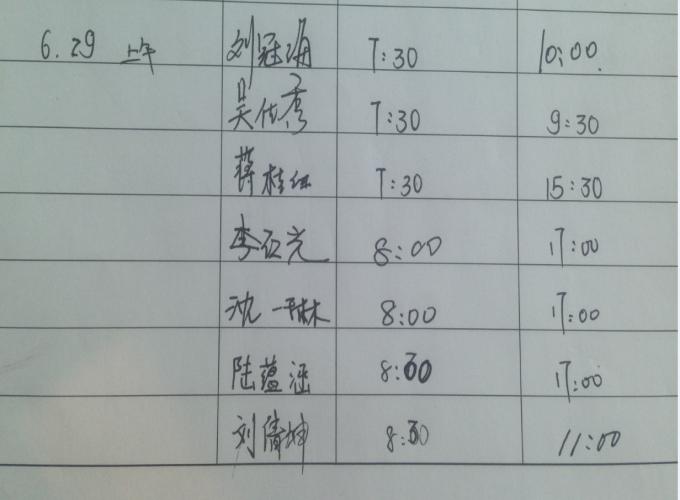 6.29 上午 刘冠海 7:30 10:00
吴佳秀 7:30 9:30
蒋桂红 7:30 15:30
李 光 8:00 17:00
沈一琳 8:00 17:00
陆蕴涵 8:30 17:00
刘倩坤 8:30 11:00